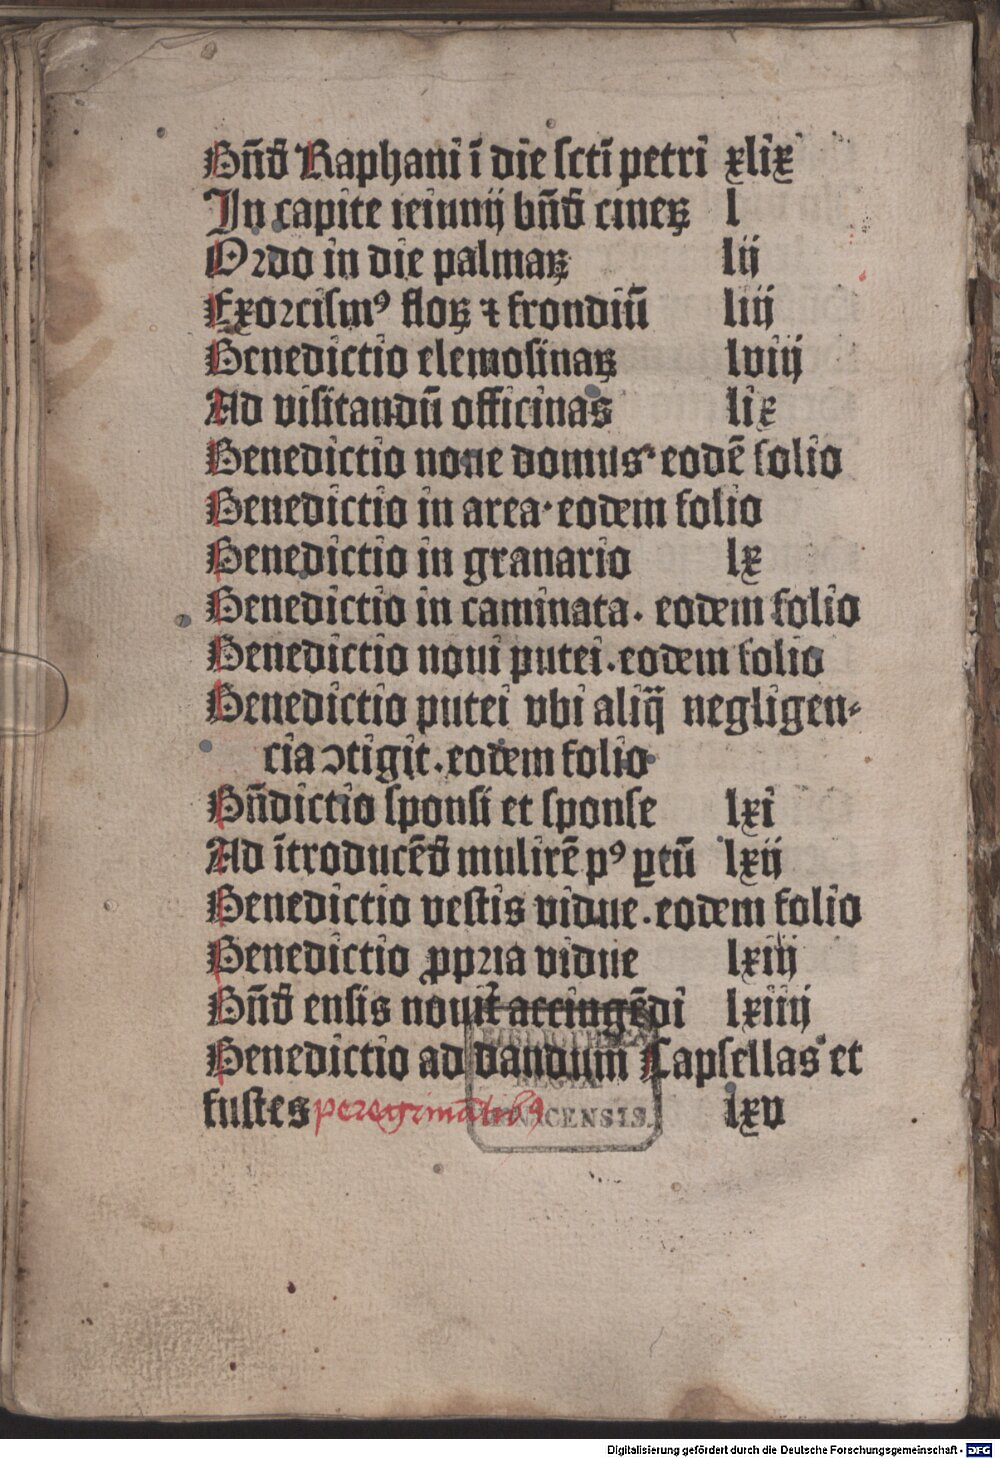 Bñd̄ Raphani ī die scti petri xlix
In capite ieiunij bñd̄ cineꝝ l
Ordo in die palmaꝝ lii
Exorcismꝰ floꝝ ⁊ frondiū liij
Benedictio elemosinaꝝ lviij
Ad visitandū officinas lix
Benedictio noue domus· eodē folio
Benedictio in area· eodem folio
Benedictio in granario lx
Benedictio in caminata. eodem folio
Benedictio noui putei. eodem folio
Benedictio putei vbi aliq̄ negligen⸗
cia ↄtigit. eodem folio
Bñdictio sponsi et sponse lxi
Ad ītroducēd̄ mulirē pꝰ ꝑtū lxij
Benedictio vestis vidue. eodem folio
Benedictio ꝓpria vidue lxiij
Bñd̄ ensis nouit̓ accingēdi lxiiij
Benedictio ad dandum Capsellas et
fustes peregrinātibꝰ lxv
BIBLIOTHECA
REGIA
MONACENSIS.
Digitalisierung gefördert durch die Deutsche Forschungsgemeinschaft - DFG